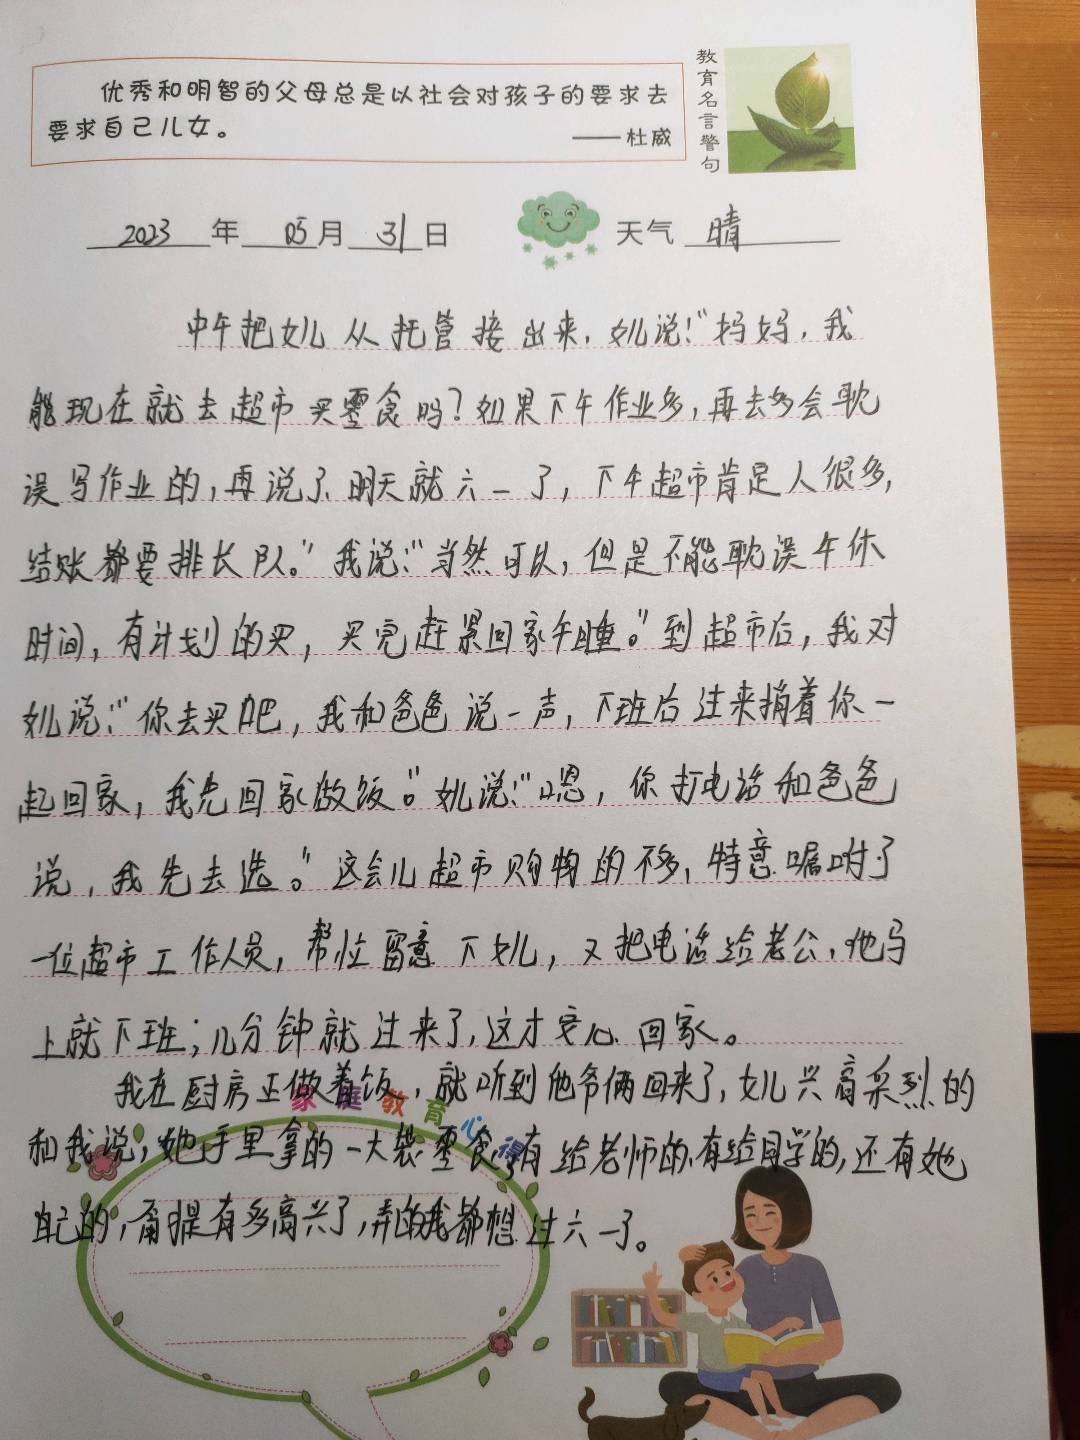 优秀和明智的父母总是以社会对孩子的要求去
要求自己儿女。
——杜威
教育名言警句
2023年05月31日 天气 晴
中午把女儿从托管接出来,女儿说:"妈妈,我
能现在就去超市买零食吗?如果下午作业多,再去多会耽
误写作业的,再说了明天就六一了,下午超市肯定人很多,
结账都要排长队。"我说:"当然可以,但是不能耽误午休
时间,有计划的买,买完赶紧回家午睡。"到超市后,我对
女儿说:"你去买吧,我和爸爸说一声,下班后过来捎着你一
起回家,我先回家做饭。"女儿说:"嗯,你打电话和爸爸
说,我先去选。"这会儿超市购物的不多,特意嘱咐了
一位超市工作人员,帮忙留意下女儿,又把电话给老公,他马
上就下班;几分钟就过来了,这才安心回家。
我在厨房正做着饭,就听到他爷俩回来了,女儿兴高采烈的
和我说;她手里拿的一大袋零食,有给老师的,有给同学的,还有她
自己的,甭提有多高兴了,弄的我都想过六一了。
家庭教育心得